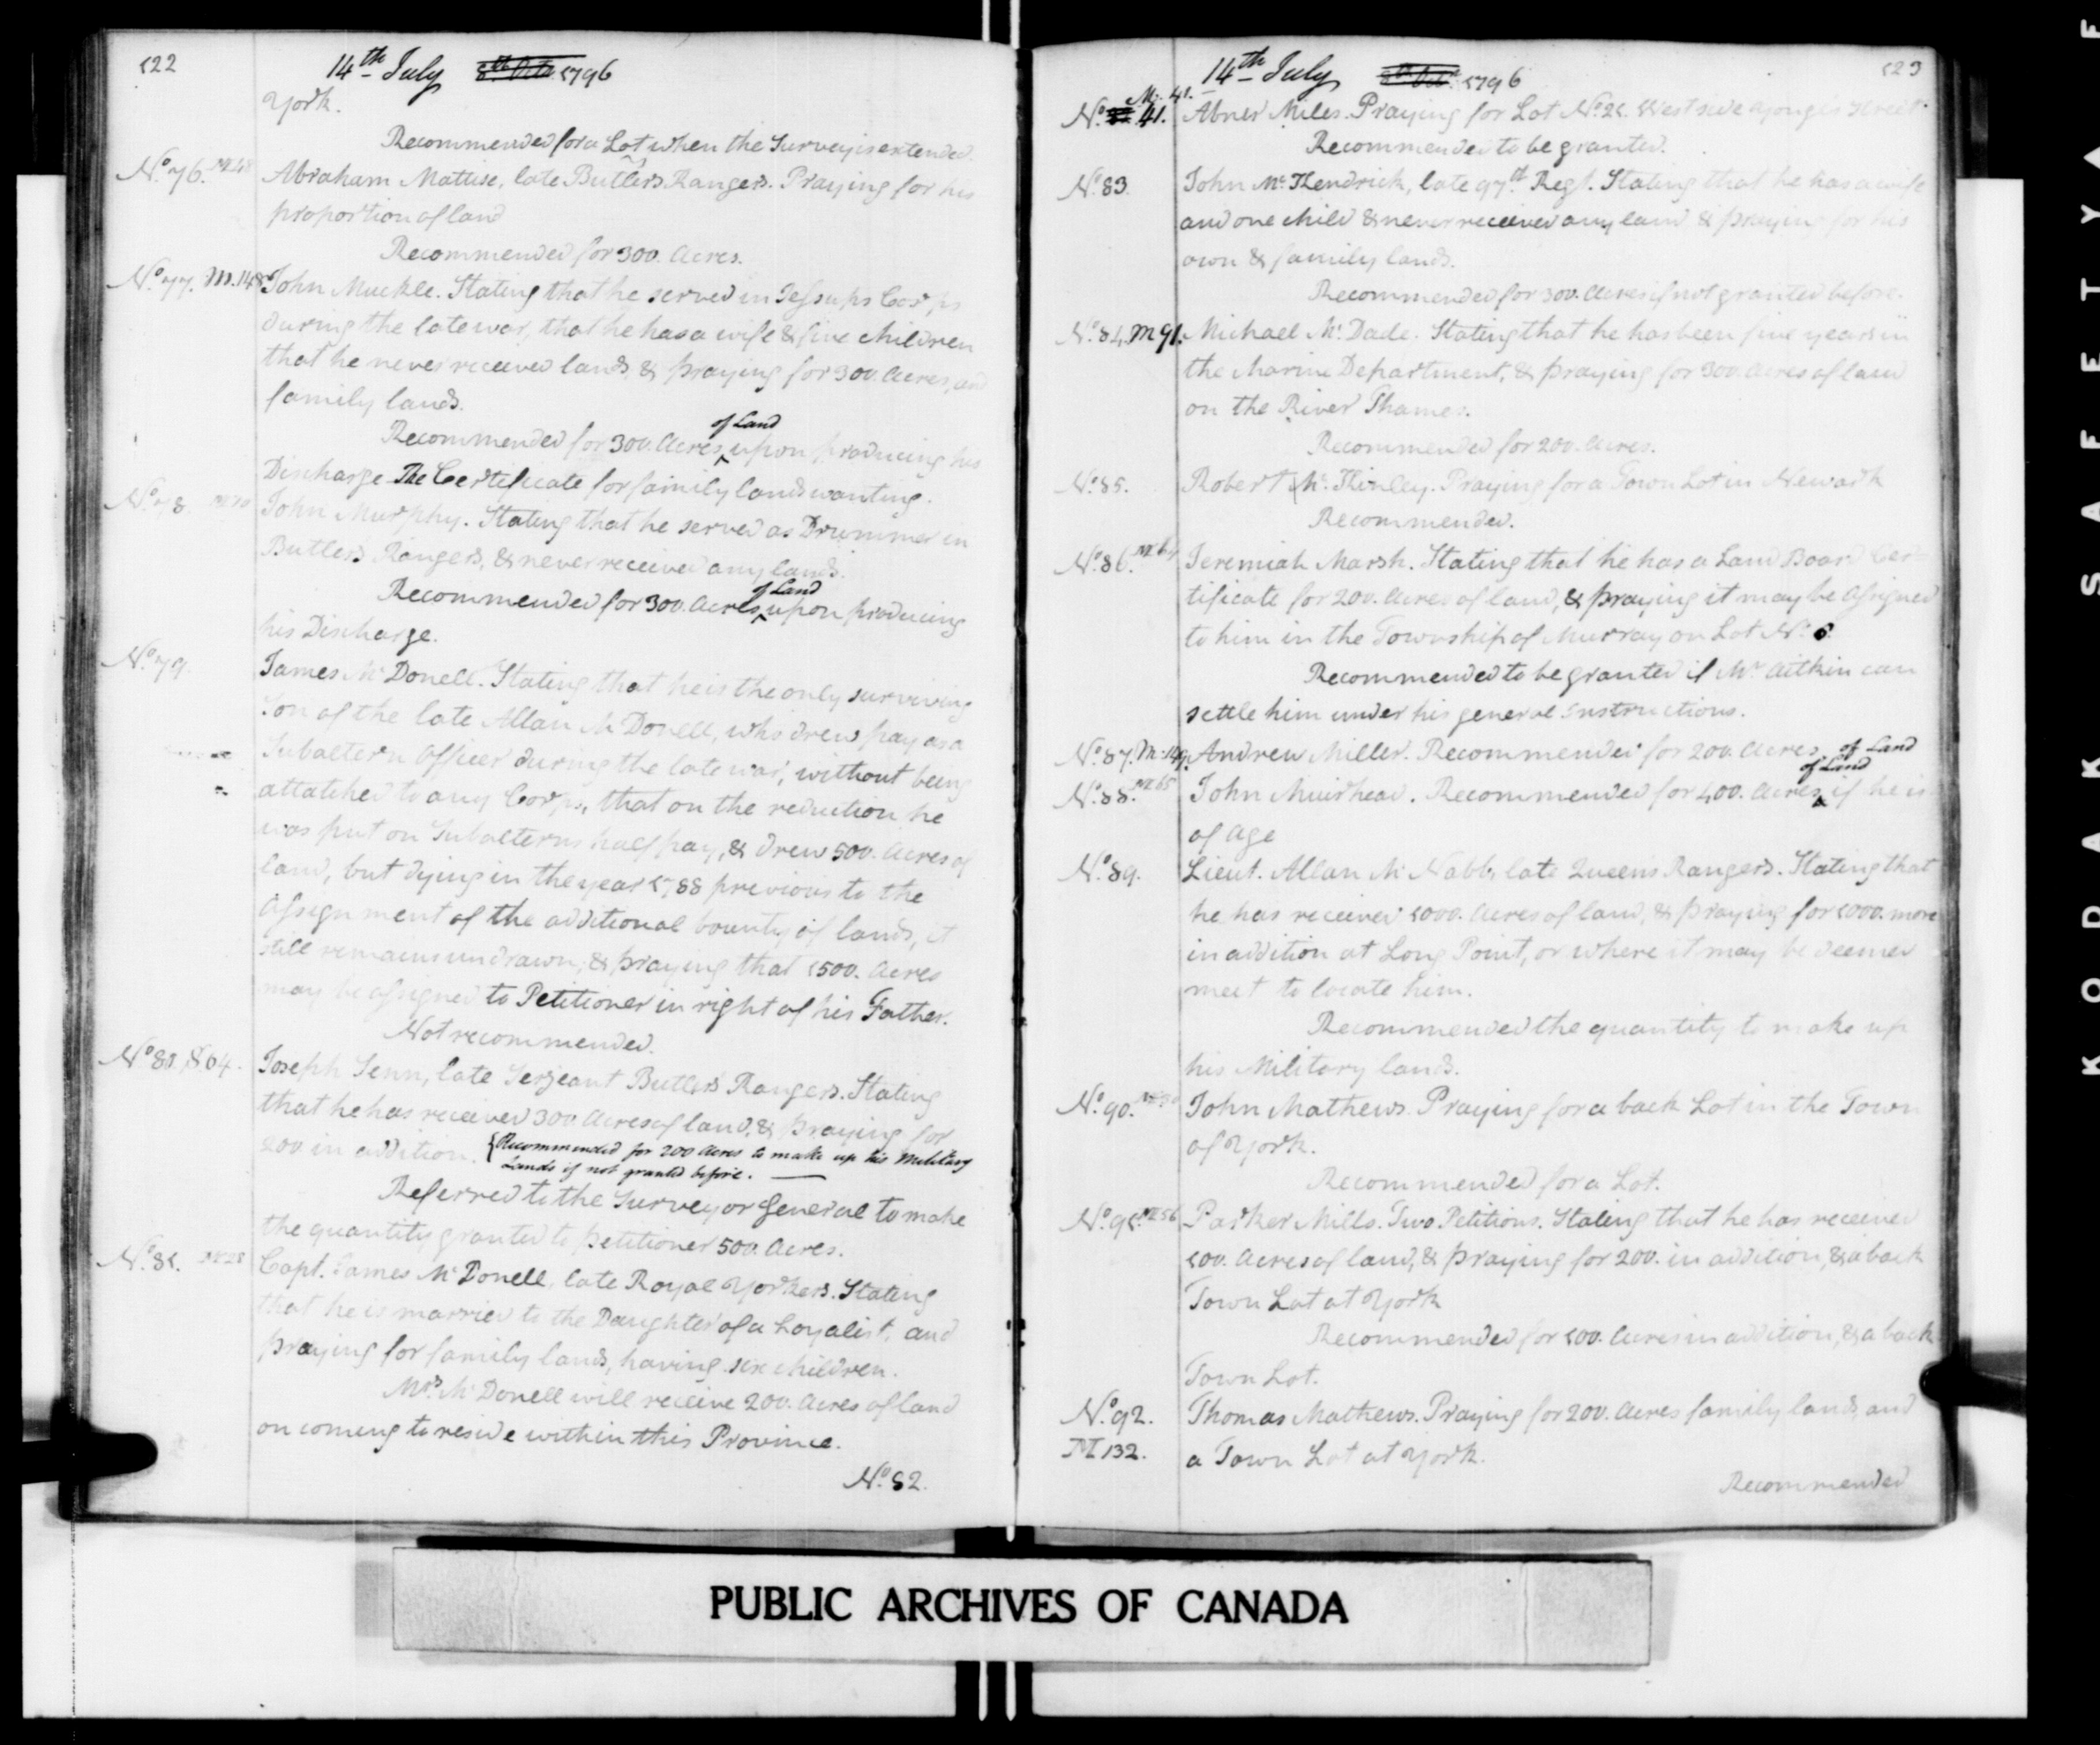 122
14th July 8th Octr 1796
York.
Recommended for a Lot when the Survey is extended.
No. 76. M48 Abraham Mattise, late Butlers Rangers. Praying for his
proportion of land
Recommended for 300. Acres.
No. 77. M.148 John Muckle. Stating that he served in Jessups Corps
during the late war, that he has a wife & five children
that he never received lands, & praying for 300. Acres, and
family lands.
of Land
Recommended for 300. Acres, upon producing his
Discharge The Certificate for family lands wanting.
No. 78. John Murphy. Stating that he served as Drummer in
Butlers Rangers, & never received any lands.
of Land
Recommended for 300. Acres, upon producing
his Discharge.
No. 79. James McDonell. Stating that he is the only surviving
Son of the late Allan McDonell, who drew pay as a
Subaltern Officer during the late war, without being
attatched to any Corps, that on the reduction he
was put on Subalterns half pay, & drew 500. Acres of
land, but dying in the year 1788 previous to the
Assignment of the additional bounty of lands, it
still remains undrawn, & praying that 1500. Acres
may be assigned to Petitioner in right of his Father.
Not recommended.
No. 80. S64. Joseph Senn, late Serjeant Butlers Rangers. Stating
that he has received 300 Acres of land, & praying for
200 in addition. {Recommended for 200 Acres to make up his Military
Lands if not granted before. —
Referred to the Surveyor General to make
the quantity granted to petitioner 500. Acres.
No. 81. M28 Capt. James McDonell, late Royal Yorkers. Stating
that he is married to the Daughter of a Loyalist, and
praying for family lands, having six children.
Mrs McDonell will receive 200. Acres of land
on coming to reside within this Province.
No. 82.
123
14th July 8th Octr 1796
M. 41.
No. 41. Abner Miles. Praying for Lot No. 21. West side Yonge's Street.
Recommended to be granted.
No. 83. John McKendrick, late 97th Regt. Stating that he has a wife
and one child & never received any land & praying for his
own & family lands.
Recommended for 300. Acres if not granted before.
No. 84. M91. Michael McDade. Stating that he has been five years in
the Marine Department, & praying for 300. Acres of land
on the River Thames.
Recommended for 200. Acres.
No. 85. Robert McKinley. Praying for a Town Lot in Newark
Recommended.
No. 86. Jeremiah Marsh. Stating that he has a Land Board Cer-
tificate for 200. Acres of land, & praying it may be Assigned
to him in the Township of Murray on Lot No.
Recommended to be granted if Mr Aitkin can
settle him under his general Instructions.
No. 87. M.149. Andrew Miller. Recommended for 200. Acres of Land
of Land
No. 88. M65 John Muirhead. Recommended for 400. Acres, if he is
of Age
No. 89. Lieut. Allan McNabb, late Queens Rangers. Stating that
he has received 1000. Acres of land, & praying for 1000. more
in addition at Long Point, or where it may be deemed
meet to locate him.
Recommended the quantity to make up
his Military lands.
No. 90. John Mathews. Praying for a back Lot in the Town
of York.
Recommended for a Lot.
No. 91. M56 Parker Mills. Two Petitions. Stating that he has received
100. Acres of land, & praying for 200. in addition, & a back
Town Lot at York
Recommended for 100. Acres in addition, & a back
Town Lot.
No. 92. Thomas Mathews. Praying for 200. Acres family lands, and
M132. a Town Lot at York.
Recommended
PUBLIC ARCHIVES OF CANADA
KODAK SAFETY